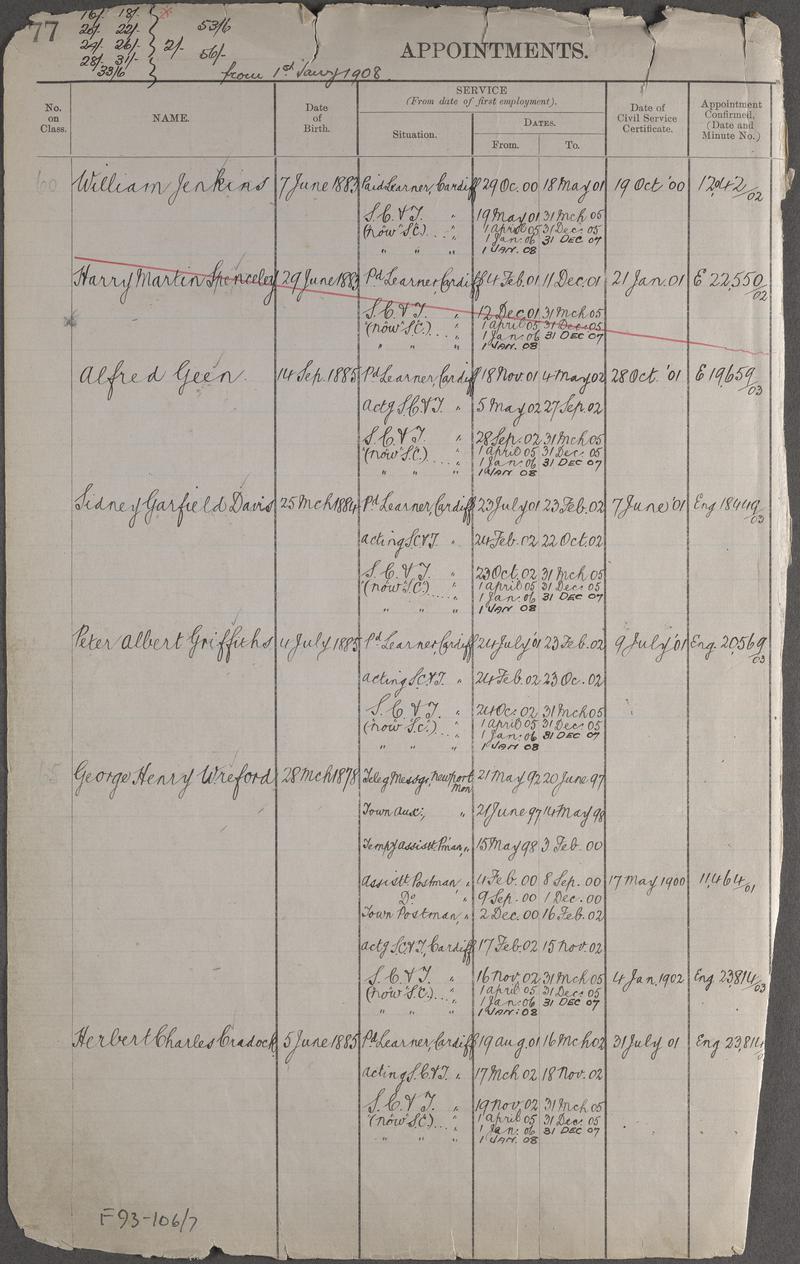 77
16/- 18/-
20/- 22/-
24/- 26/-
28/- 31/-
33/6
2/-
53/6
56/-
from 1st Jany 1908.
APPOINTMENTS.
No. on Class.
NAME.
Date of Birth.
SERVICE
(From date of first employment).
Situation.
DATES.
From.
To.
Date of Civil Service Certificate.
Appointment Confirmed, (Date and Minute No.)
60 William Jenkins 7 June 1883 Paid Learner, Cardiff 29 Oc. 00 18 May 01 19 Oct '00
S.C. & T. " 19 May 01 31 Mch 05
(now S.C.) " 1 April 05 31 Dec. 05
1 Jan. 06 31 DEC 07
" " " 1 JAN. 08
Harry Martin Spenceley 29 June 1883 Pd Learner, Cardiff 4 Feb. 01 11 Dec. 01 21 Jan. 01 E 22,550/02
S.C. & T. " 12 Dec. 01 31 Mch 05
(now S.C.) " 1 April 05 31 Dec. 05
1 Jan. 06 31 DEC 07
" " " 1 JAN. 08
Alfred Geen. 14 Sep. 1885 Pd Learner, Cardiff 18 Nov. 01 4 May 02 28 Oct. '01 E 19,659/03
Actg S.C. & T. " 5 May 02 27 Sep. 02
S.C. & T. " 28 Sep. 02 31 Mch 05
(now S.C.) " 1 April 05 31 Dec. 05
1 Jan. 06 31 DEC 07
" " " 1 JAN 08
Sidney Garfield Davis 25 Mch 1884 Pd Learner, Cardiff 23 July 01 23 Feb. 02 7 June '01 Eng 18449/03
Acting S.C. & T. " 24 Feb. 02 22 Oct. 02
S.C. & T. " 23 Oct. 02 31 Mch 05
(now S.C.) " 1 April 05 31 Dec. 05
1 Jan. 06 31 DEC 07
" " " 1 JAN 08
Peter Albert Griffiths 4 July 1885 Pd Learner, Cardiff 24 July '01 23 Feb. 02 9 July '01 Eng. 20,569/03
Acting S.C. & T. " 24 Feb. 02 23 Oc. 02
S.C. & T. " 24 Oc. 02 31 Mch 05
(now S.C.) " 1 April 05 31 Dec. 05
1 Jan. 06 31 DEC 07
" " " 1 JAN 08
65 George Henry Wreford 28 Mch 1878 Teleg Messgr, Newport Mon 21 May 92 20 June 97
Town Aux:, " 21 June 97 14 May 98
Tempy Assistt P'man, " 15 May 98 3 Feb. 00
Assistt. Postman, " 4 Feb. 00 8 Sep. 00 17 May 1900 11,464/01
Do " 9 Sep. 00 1 Dec. 00
Town Postman, " 2 Dec. 00 16 Feb. 02
Actg S.C. & T., Cardiff 17 Feb. 02 15 Nov. 02
S.C. & T. " 16 Nov. 02 31 Mch 05 4 Jan. 1902 Eng 23,814/03
(now S.C.) " 1 April 05 31 Dec. 05
1 Jan. 06 31 DEC 07
" " " 1 JAN. 08
Herbert Charles Cradock 5 June 1885 Pd Learner, Cardiff 19 Aug. 01 16 Mch 02 31 July 01 Eng 23,814/
Acting S.C. & T. " 17 Mch 02 18 Nov. 02
S.C. & T. " 19 Nov. 02 31 Mch 05
(now S.C.) " 1 April 05 31 Dec. 05
1 Jan. 06 31 DEC 07
" " " 1 JAN. 08
F93-106/7